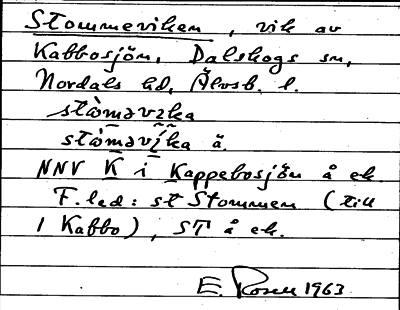 Stommeviken, vik av
Kabbosjön, Dalskogs sn,
Nordals hd, Älvsb. l.
stòmavıka
stòmavı̃ka ä.
NNV K i Kappebosjön å ek.
F. led: st Stommen (till
1 Kabbo), ST å ek.
E. Rosell 1963